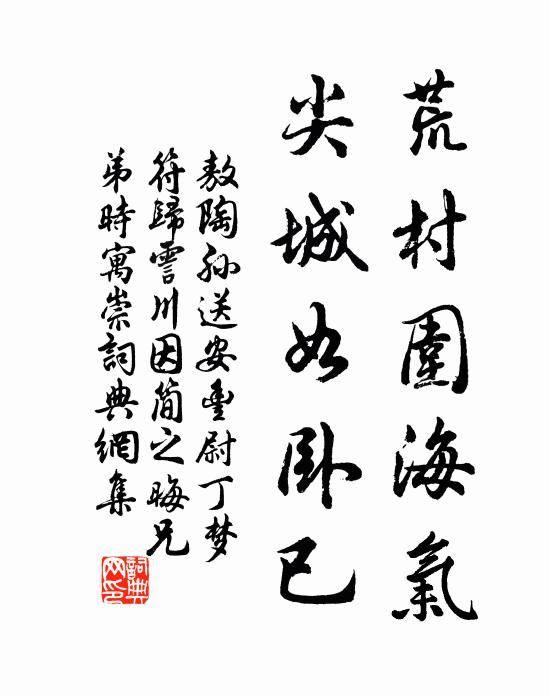 荒村圍海氣
尖城如卧已
敖陶孫送安豐尉丁梦
符歸霅川因簡之晦兄
弟時寓崇詞典網集
詞典网印